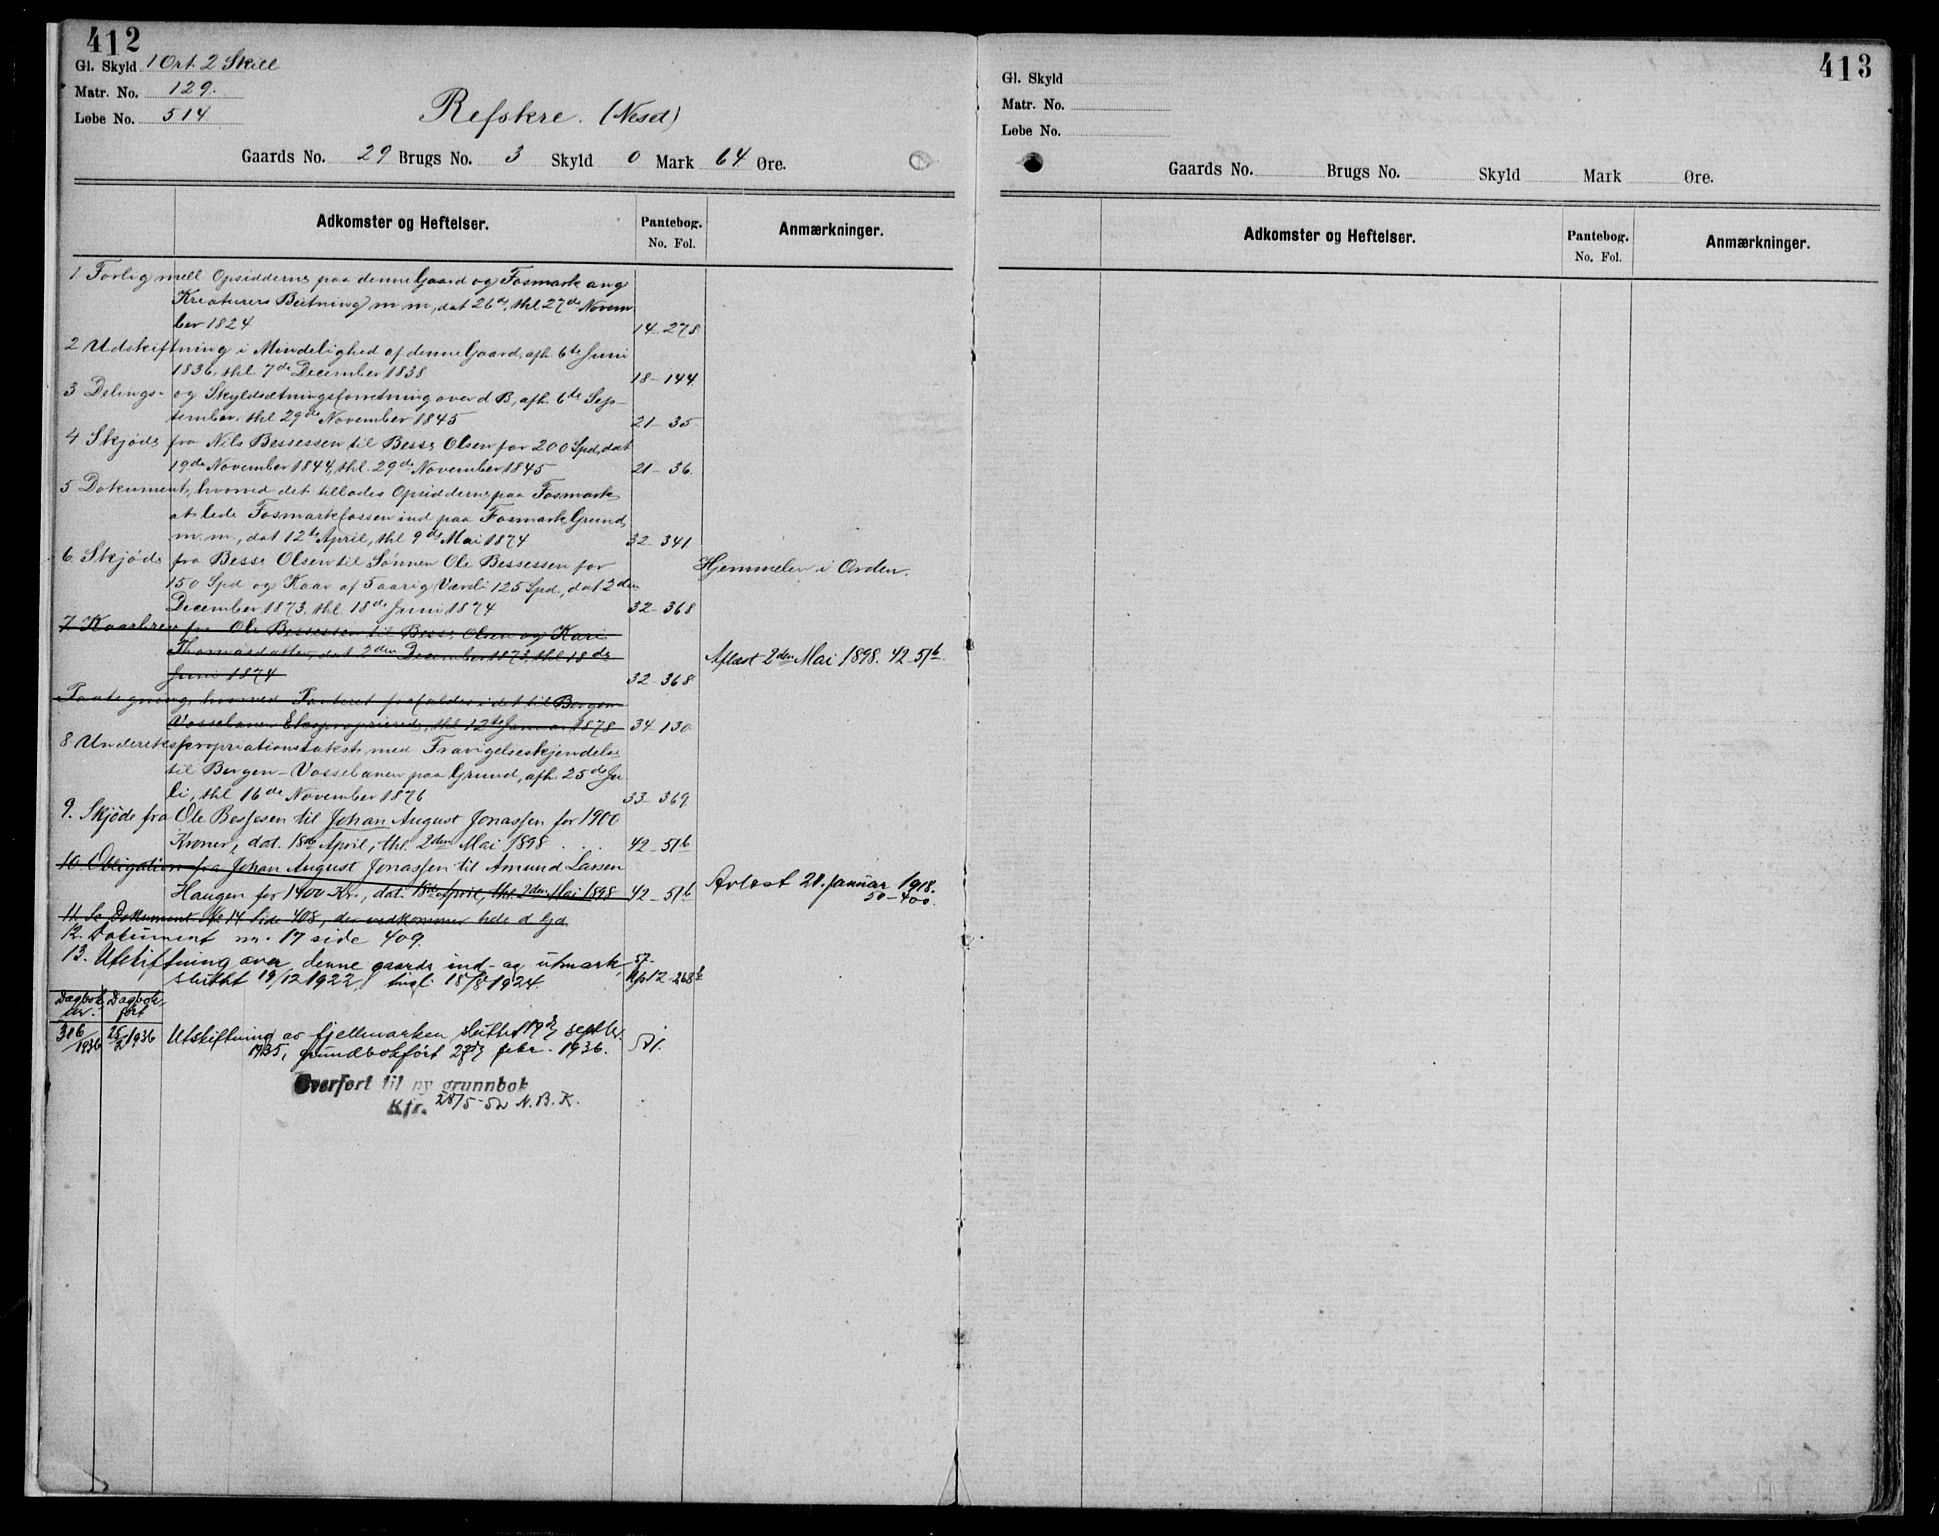 412
Gl. Skyld 1 Ort. 2 Skill
Matr. No. 129.
Løbe No. 514
Refskre. (Neset)
Gaards No. 29 Brugs No. 3 Skyld 0 Mark 64 Øre.
Adkomster og Heftelser.
Pantebog.
No. Fol.
Anmærkninger.
1 Forlig mell Opsidderne paa denne Gaard og Fosmark ang
Kreaturers Beitning m m, dat 26de, thl 27de Novem
ber 1824 14-278
2 Udskiftning i Mindelighed af denne Gaard, afh. 6te Juni
1836, thl. 7de December 1838 18-144
3 Delings- og Skyldsætningsforretning over d B, afh. 6te Sep-
tember, thl 29de November 1845 21-35
4 Skjøde fra Nils Bessessen til Besse Olsen for 200 Spd, dat
19de November 1844, thl. 29de November 1845 21-36.
5 Dokument, hvorved det tillades Opsidderne paa Fosmark
at lede Fosmarkfossen ind paa Fosmark Grund
m. m., dat 12te April, thl 9de Mai 1874 32-341
6. Skjøde fra Besse Olsen til Sønnen Ole Bessessen for
150 Spd og Kaar af 5 aarig Værdi 125 Spd, dat 2den
December 1873, thl. 18de Juni 1874 32-368
Hjemmelen i Orden.
7 Kaarbrev fra Ole Bessessen til Besse Olsen og Kari
Thomasdatter, dat 2den December 1873, thl 18de
Juni 1874 32-368
Aflæst 2den Mai 1898. 42-51b
Paategning, hvorved Panteret frafaldes i det til Bergen
Vossebanen Eksproprierede, thl 12te Januar 1878 34-130
8 Underekspropriationstakst med Fravigelseskjendelse
til Bergen-Vossebanen paa Grund, afh 25de Ju
li, thl 16de November 1876 33-369
9. Skjøde fra Ole Bessesen til Johan August Jonassen for 1900
Kroner, dat. 18de April, thl. 2den Mai 1898 . . . 42-51b
10. Obligation fra Johan August Jonassen til Amund Larsen
Haugen for 1400 Kr., dat. 18de April, thl. 2den Mai 1898 42-51b
Avlæst 21. januar 1918.
50-400.
11. Se Dokument № 14 Side 408, der vedkommer hele d Gd
12. Dokument nr. 17 side 409.
13. Utskiftning over denne gaards ind- og utmark,
sluttet 19/12 1922, tingl. 18/8 1924. 57-
Up 12-268b
Dagbok nr. Dagbok ført
316/1936 25/2 1936 Utskiftning av fjellmarken sluttet 19de septbr.
1935, grundbokført 27de febr. 1936. A1.
Overført til ny grunnbok
Kfr. 28/5-52 N.B.K.
413
Gl. Skyld
Matr. No.
Løbe No.
Gaards No. Brugs No. Skyld Mark Øre.
Adkomster og Heftelser.
Pantebog.
No. Fol.
Anmærkninger.